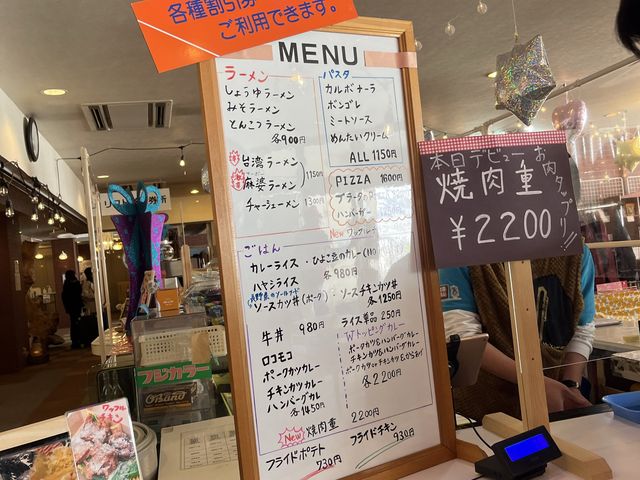 各種割引券
ご利用できます。
MENU
ラーメン
しょうゆラーメン
みそラーメン
とんこつラーメン
各900円
台湾ラーメン
麻婆ラーメン
1150円
チャーシューメン 1300円
パスタ
カルボナーラ
ボンゴレ
ミートソース
めんたいクリーム
ALL 1150円
PIZZA 1600円
ハンバーガー
New
ごはん
カレーライス・ひよこ豆のカレー
ハヤシライス 各980円
ソースカツ丼(ポーク)・ソースチキンカツ丼
各1250円
牛丼 980円
ロコモコ
ポークカツカレー
チキンカツカレー
ハンバーグカレー
各1450円
ライス単品 250円
Wトッピングカレー
ポークカツ&ハンバーグカレー
チキンカツ&ハンバーグカレー
各2200円
New 焼肉重 2200円
フライドポテト 730円
フライドチキン 930円
本日デビュー
焼肉重
¥2200
お肉タップリ!!
フジカラー
ワッフル